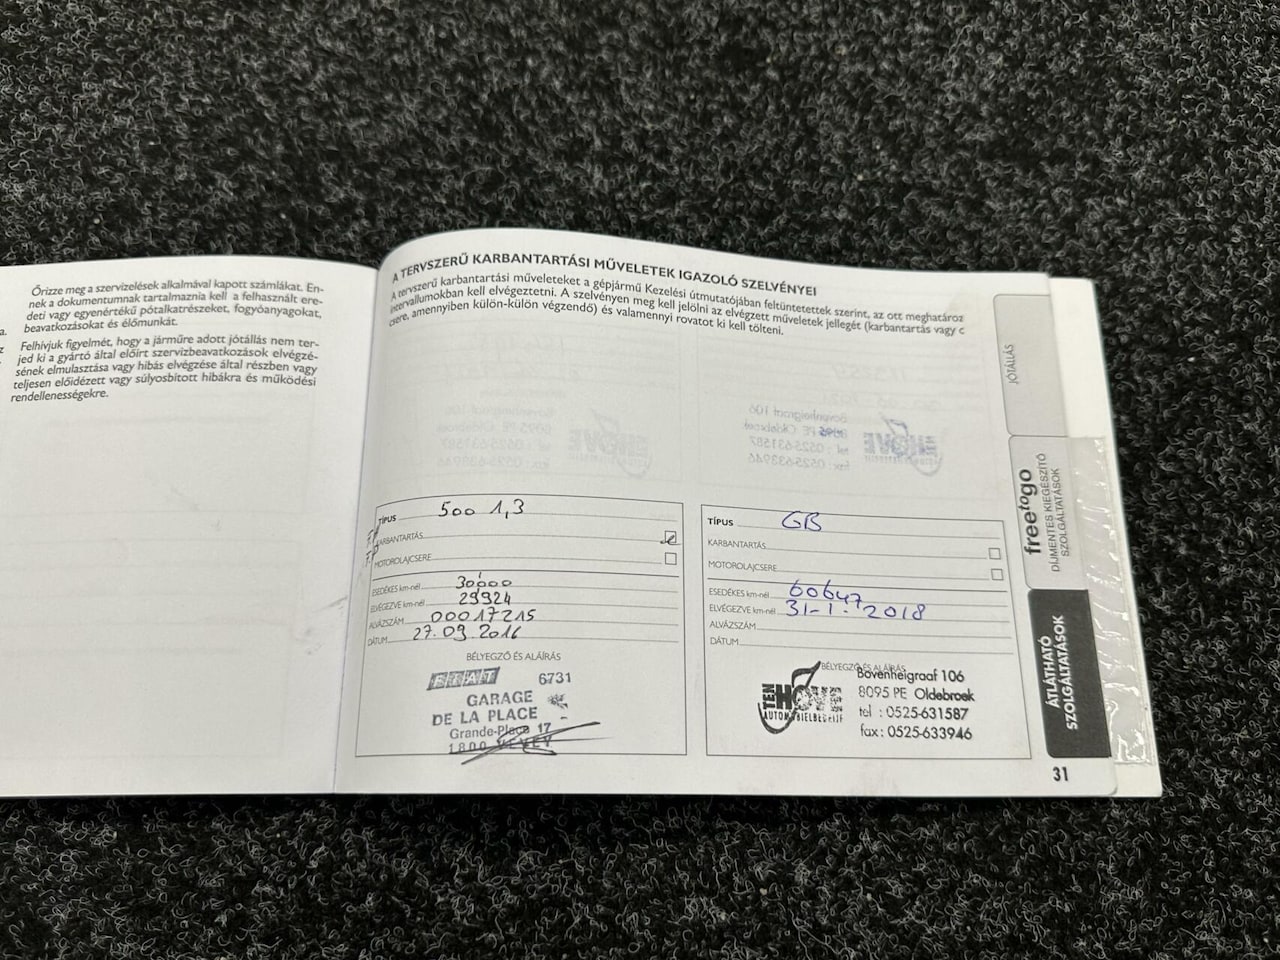 Őrizze meg a szervizelések alkalmával kapott számlákat. En-
nek a dokumentumnak tartalmaznia kell a felhasznált ere-
deti vagy egyenértékű pótalkatrészeket, fogyóanyagokat,
beavatkozásokat és élőmunkát.
Felhívjuk figyelmét, hogy a járműre adott jótállás nem ter-
jed ki a gyártó által előírt szervizbeavatkozások elvégzé-
sének elmulasztása vagy hibás elvégzése által részben vagy
teljesen előidézett vagy súlyosbított hibákra és működési
rendellenességekre.
A TERVSZERŰ KARBANTARTÁSI MŰVELETEK IGAZOLÓ SZELVÉNYEI
A tervszerű karbantartási műveleteket a gépjármű Kezelési útmutatójában feltüntetettek szerint, az ott meghatároz
intervallumokban kell elvégeztetni. A szelvényen meg kell jelölni az elvégzett műveletek jellegét (karbantartás vagy c
csere, amennyiben külön-külön végzendő) és valamennyi rovatot ki kell tölteni.
TÍPUS 500 1,3
KARBANTARTÁS
MOTOROLAJCSERE
ESEDÉKES km-nél 30'000
ELVÉGEZVE km-nél 29924
ALVÁZSZÁM 00017215
DÁTUM 27.09 2016
BÉLYEGZŐ ÉS ALÁÍRÁS
FIAT 6731
GARAGE
DE LA PLACE
Grande-Place 17
1800 VEVEY
TÍPUS GB
KARBANTARTÁS
MOTOROLAJCSERE
ESEDÉKES km-nél 60647
ELVÉGEZVE km-nél 31-1-2018
ALVÁZSZÁM
DÁTUM
BÉLYEGZŐ ÉS ALÁÍRÁS
TEN HOVE
AUTOMOBIELBEDRIJF
Bovenheigraaf 106
8095 PE Oldebroek
tel : 0525-631587
fax : 0525-633946
JÓTÁLLÁS
freetogo
DÍJMENTES KIEGÉSZÍTŐ
SZOLGÁLTATÁSOK
ÁTLÁTHATÓ
SZOLGÁLTATÁSOK
31